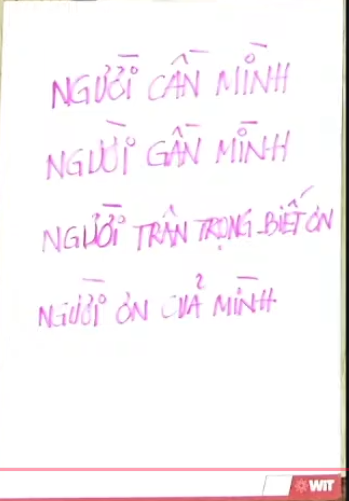 NGƯỜI CẦN MÌNH
NGƯỜI GẦN MÌNH
NGƯỜI TRÂN TRỌNG BIẾT ƠN
NGƯỜI ƠN CỦA MÌNH
WIT